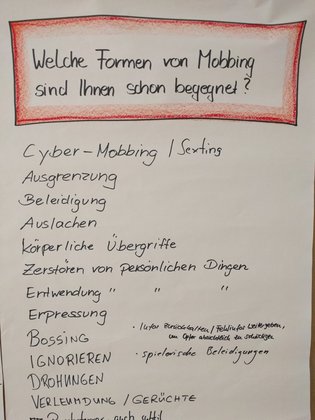 Welche Formen von Mobbing
sind Ihnen schon begegnet?
Cyber-Mobbing / Sexting
Ausgrenzung
Beleidigung
Auslachen
Körperliche Übergriffe
Zerstören von persönlichen Dingen
Entwendung " " "
Erpressung
Bossing
• Infos zurückhalten / Fehlinfos weitergeben,
um Opfer absichtlich zu schädigen
IGNORIEREN
• spielerische Beleidigungen
DROHUNGEN
VERLEUMDUNG / GERÜCHTE